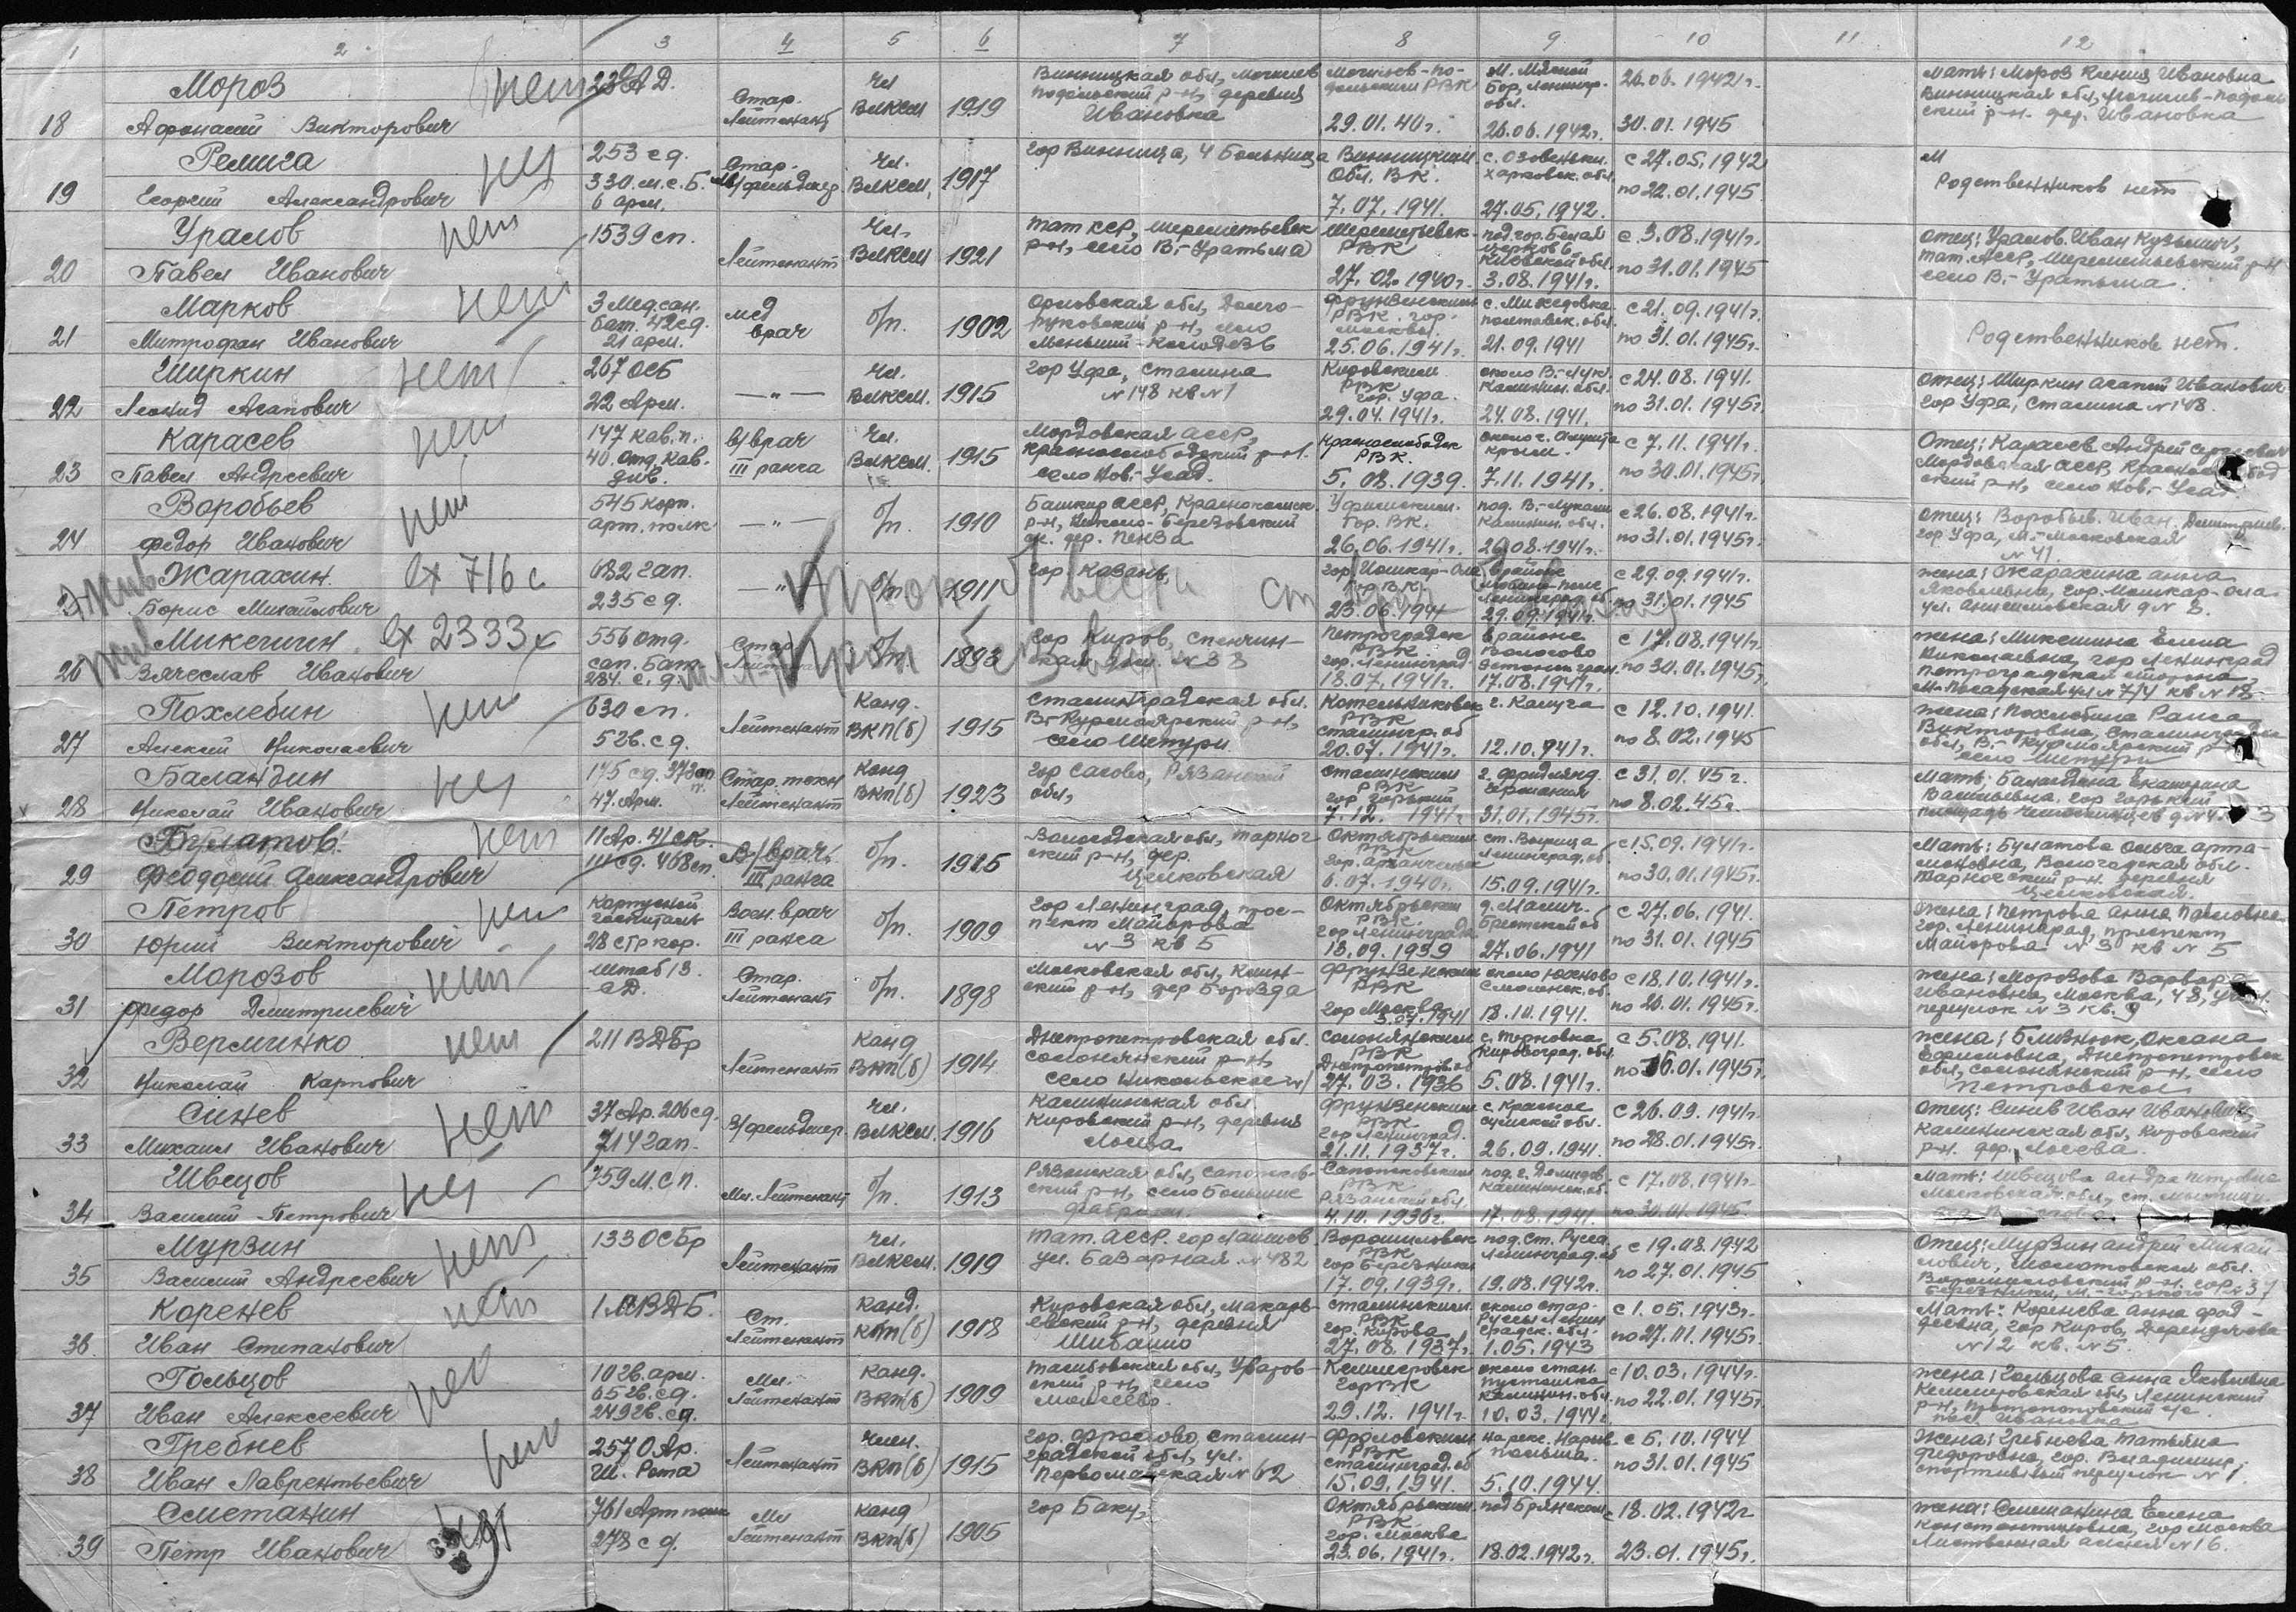 1 2 3 4 5 6 7 8 9 10 11 12
18 Мороз Афонасий Викторович нет
23 СА Д.
Стар. Лейтенант
Чл ВЛКСМ
1919
Винницкая обл, могилев подольский р-н, деревня Ивановка
Могилев-подольский РВК 29.01.40г.
М. Мясной Бор, Ленингр. обл. 26.06.1942г.
26.06.1942г. 30.01.1945
Мать: Мороз Ивановна Винницкая обл, могилев-подольский р-н. дер. Ивановка
19 Ремига Георгий Александрович нет
253 сд. 330.м.с.Б. 6 арм.
Стар. в/фельдшер
Чл. ВЛКСМ,
1917
гор Винница, 4 Больница
Винницким Обл. ВК. 7.07.1941.
с. Озовеньки. Харьковск. обл. 27.05.1942.
с 27.05.1942 по 22.01.1945
М Родственников нет
20 Уралов Павел Иванович нет
1539 сп.
Лейтенант
Чл. ВЛКСМ
1921
Тат ССР, шереметьевск р-н, село В.-Уратьма
Шереметьевск. РВК 27.02.1940г.
под гор. Белая церковь Киевской обл. 3.08.1941г.
с 3.08.1941г. по 31.01.1945
Отец: Уралов Иван Кузьмич, Тат. АССР, Шереметьевский р-н село В.-Уратьма.
21 Марков Митрофан Иванович нет
3 Медсан. бат. 42 сд. 21 арм.
мед врач
б/п.
1902
Орловская обл, Долгоруковский р-н, село Меньший-Колодезь
Фрунзенским РВК. гор. Москвы. 25.06.1941г.
с. Михедовка Полтавск. обл. 21.09.1941
с 21.09.1941г. по 31.01.1945г.
Родственников нет.
22 Ширкин Леонид Агапович нет
267 ОСБ 22 Арм.
—"—
Чл. ВЛКСМ.
1915
гор Уфа, Сталина №148 кв №1
Кировским РВК гор. Уфа. 29.04.1941г.
около В-Лук. Калинин. обл. 24.08.1941.
с 24.08.1941. по 31.01.1945г.
Отец: Ширкин Агапий Иванович гор Уфа, Сталина №148.
23 Карасев Павел Андреевич нет
147 кав.п. 40. отд. кав. див.
в/врач III ранга
Чл. ВЛКСМ.
1915
Мордовская АССР, Краснослободский р-н. село Нов.-Усад.
Краснослободск РВК. 5.08.1939.
около г. Алушта Крым. 7.11.1941г.
с 7.11.1941г. по 30.01.1945г.
Отец: Карасев Андрей Мордовская АССР, р-н, село Нов.-Усад
24 Воробьев Федор Иванович нет
545 корп. арт. полк
—"—
б/п.
1910
Башкир АССР, Краснокамск р-н, Николо-Березовский дер. Пенза
Уфимским. Гор. ВК. 26.06.1941г.
под. В.-Луками Калинин. обл. 26.08.1941г.
с 26.08.1941г. по 31.01.1945г.
отец: Воробьев. Иван. Дмитриев. гор Уфа, М.-Московская №41.
жив Жарахин. Борис Михайлович вх 716 с
682 гап. 235 сд.
—"—
б/п
1911
гор. Казань,
гор. Йошкар-Ола Гор В.К. 23.06.1941
В районе Ленинград. об. 29.09.1941г.
с 29.09.1941г. по 31.01.1945
жена: Жарахина Анна Яковлевна, гор. Йошкар-Ола ул. д № 8.
26 жив Микешин Вячеслав Иванович вх 2333 с
556 отд. сап. Бат. 284. с.д.
Стар. Лейтенант
б/п
1893
гор Киров,
Петроградск РВК. гор. Ленинград 18.07.1941г.
в районе Волосово 17.08.1941г.
с 17.08.1941г. по 30.01.1945г.
жена: Микешина Елена Николаевна, гор Ленинград Петроградская сторона, М-Посадская ул № 7/4 кв № 18
27 Похлебин Алексей Николаевич нет
630 сп. 52в. сд.
Лейтенант
Канд. ВКП(б)
1915
Сталинградская обл. В-Курмоярский р-н, село Шебури
Котельниковск РВК Сталингр. об 20.07.1941г.
г. Калуга 12.10.941г.
с 12.10.1941. по 8.02.1945
жена: Похлебина Раиса Викторовна, Сталинградск обл, В.-Курмоярский р-н
28 Баландин Николай Иванович нет
175 сд. 373 сп 47. Арм.
Стар. техн Лейтенант
Канд ВКП(б)
1923
гор Сасово, Рязанской обл,
Сталинским РВК гор Горький 7.12.1941г
г. Фридлянд. Германия 31.01.1945г.
с 31.01.45г. по 8.02.45г.
Мать: Баландина Екатерина Васильевна, гор Горький площадь Челюскинцев д №
29 Булатов. Феодосий Александрович нет
11 Ар. 41 ск. 111 сд. 468 сп.
В/врач. III ранга
б/п.
1915
Вологодская обл, Тарногский р-н, дер. Целковская
Октябрьским РВК гор. Архангельск 6.07.1940г.
ст. Вырица Ленинград. об. 15.09.1941г.
с 15.09.1941г. по 30.01.1945г.
Мать: Булатова Ольга Артамоновна, Вологодская обл. Тарногский р-н. деревня Целковская.
30 Петров Юрий Викторович нет
Корпусной госпиталь 28 стр кор.
Воен. врач III ранга
б/п.
1909
гор Ленинград, проспект Майорова №3 кв 5
Октябрьским РВК. гор Ленинграда 18.09.1939
д. Брестской об 27.06.1941
с 27.06.1941. по 31.01.1945
жена: Петрова Анна Павловна гор. Ленинград, проспект Майорова № 3 кв № 5
31 Морозов Федор Дмитриевич нет
Штаб 13. СД.
Стар. Лейтенант
б/п.
1898
Московская обл, Клинский р-н, дер Борозда
Фрунзенским РВК гор Москва 3.07.1941
около Юхново Смоленск. об. 18.10.1941.
с 18.10.1941г. по 20.01.1945г.
жена: Морозова Варвара Ивановна, Москва, 48, переулок №3 кв. 9
32 Верминко Николай Карпович нет
211 ВДБр
Лейтенант
Канд ВКП(б)
1914
Днепропетровская обл. Солонянский р-н, село Никольское
Солонянским РВК Днепропетров. об 27.03.1936
с. Терновка Кировоград. обл. 5.08.1941г.
с 5.08.1941. по 16.01.1945г.
жена: Близнюк, Оксана Ефимовна, Днепропетровск обл, Солонянский р-н, село Петровское
33 Синев Михаил Иванович нет
37 Ар. 206 сд. 714 гап.
В/фельдшер.
чл. ВЛКСМ.
1916
Калининская обл Кировский р-н, деревня Лосева
Фрунзенским РВК гор Ленинград. 21.11.1937г.
с. Красное Сумской обл. 26.09.1941.
с 26.09.1941г. по 28.01.1945г.
Отец: Синев Иван Иванович, Калининская обл, Кировский р-н. дер. Лосева.
34 Швецов Василий Петрович нет
759 м. с п.
Мл. Лейтенант
б/п.
1913
Рязанская обл, Сапожковский р-н, село Большие
Сапожковским РВК Рязанской обл. 4.10.1936г.
под г. Демидов Калининск. об. 17.08.1941.
с 17.08.1941г. по 30.01.1945.
Мать: Швецова Петровна Московская обл, ст. Мытищи.
35 Мурзин Василий Андреевич нет
133 ОСБр
Лейтенант
Чл. ВЛКСМ.
1919
Тат. АССР. гор Лаишев ул. Базарная №482
Ворошиловск РВК гор Березники 17.09.1939г.
под. Ст. Русса Ленинград. об 19.08.1942г.
с 19.08.1942 по 27.01.1945
Отец: Мурзин Андрей Михайлович, Молотовская обл. Ворошиловский р-н. гор. Березники, М.-Горького
36. Коренев Иван Степанович нет
1 МВДБ.
Ст. Лейтенант
Канд. КП(б)
1918
Кировская обл, Макарьевский р-н, деревня Шибаило
Сталинским РВК гор. Кирова 27.08.1937г.
около Стар. Руссы Ленинградск. обл. 1.05.1943
с 1.05.1943г. по 27.01.1945г.
Мать: Коренева Анна Фадеевна, гор Киров, Дерендяева №12 кв. №5.
37 Гольцов Иван Алексеевич нет
10 гв. арм. 65 гв. сд. 249 гв. сп.
Мл. Лейтенант
канд. ВКП(б)
1909
Тамбовская обл, Уваровский р-н, село Моисеево.
Кемеровск ГорВК 29.12.1941г.
около стан. Пустошка Калинин. обл 10.03.1944г.
с 10.03.1944г. по 22.01.1945г.
жена: Гольцова Анна Яковлевна Кемеровская обл, Ленинский р-н, Протопоповский с/с. пос. Ивановка
38 Гребнев Иван Лаврентьевич нет
257 О Ар. Ш. Рота
Лейтенант
Член. ВКП(б)
1915
гор. Фролово, Сталинградской обл, ул. Первомайская № 62
Фроловским РВК Сталинград. об 15.09.1941.
на реке. Нарев Польша. 5.10.1944.
с 5.10.1944 по 31.01.1945
Жена: Гребнева Татьяна Федоровна, гор. Владимир, спортивный переулок №1.
39 Сметанин Петр Иванович нет
761 Арт полк 278 сд.
Мл Лейтенант
канд ВКП(б)
1905
гор Баку,
Октябрьским РВК гор. Москва 23.06.1941г.
под Брянском 18.02.1942г.
с 18.02.1942г 23.01.1945г.
жена: Сметанина Елена Константиновна, гор Москва Лиственная аллея №16.